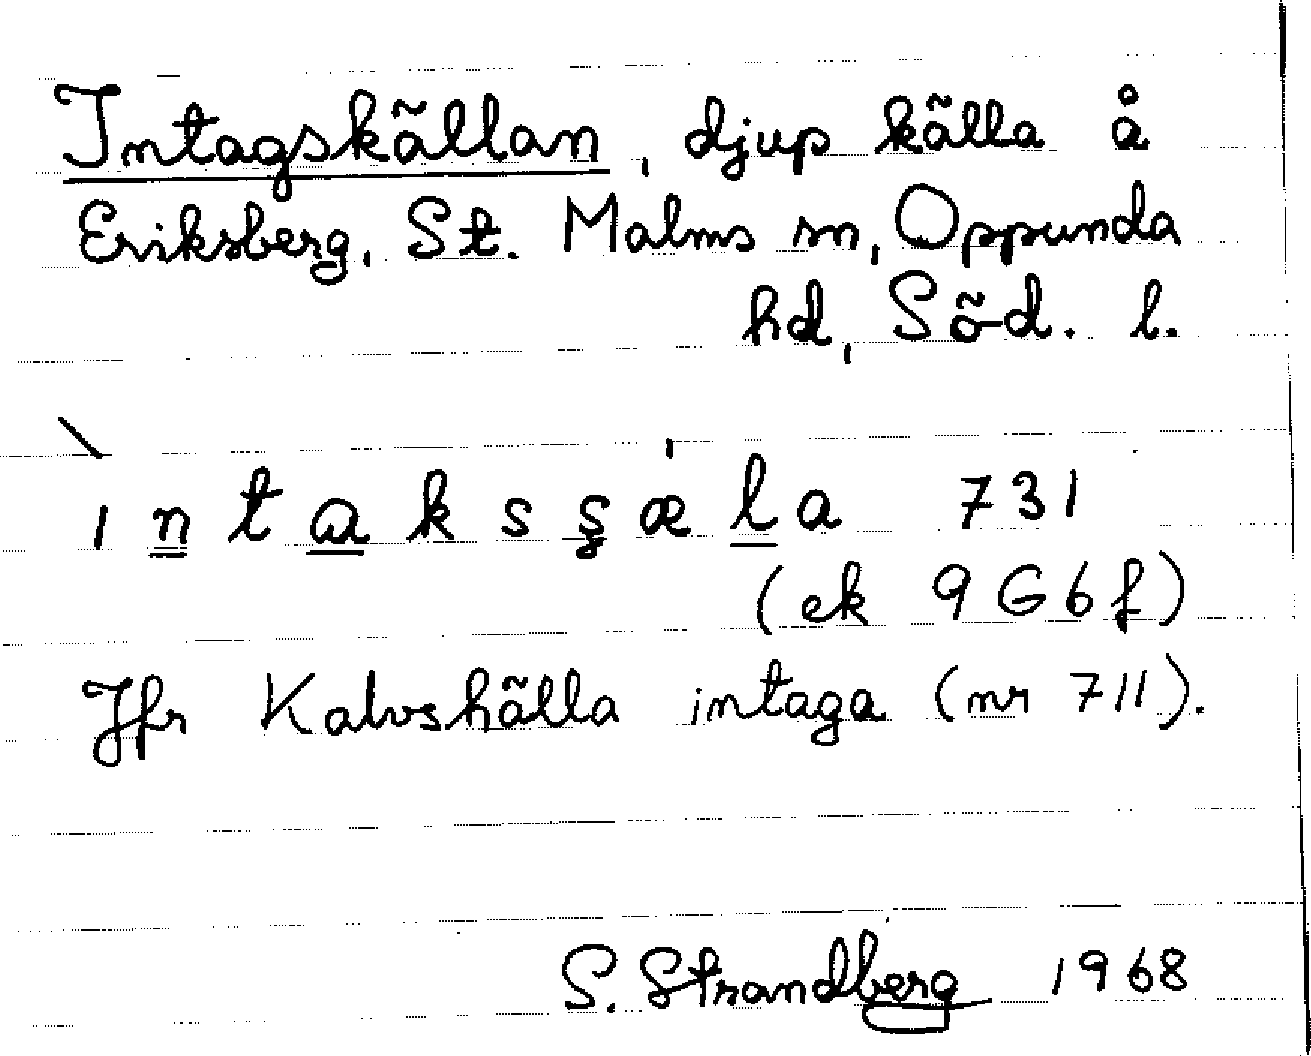 Intagskällan, djup källa å
Eriksberg, St. Malms sn, Oppunda
hd, Söd. l.
ıntaksşæla 731
(ek 9 G 6 f)
Jfr Kalvshälla intaga (nr 711).
S. Strandberg 1968